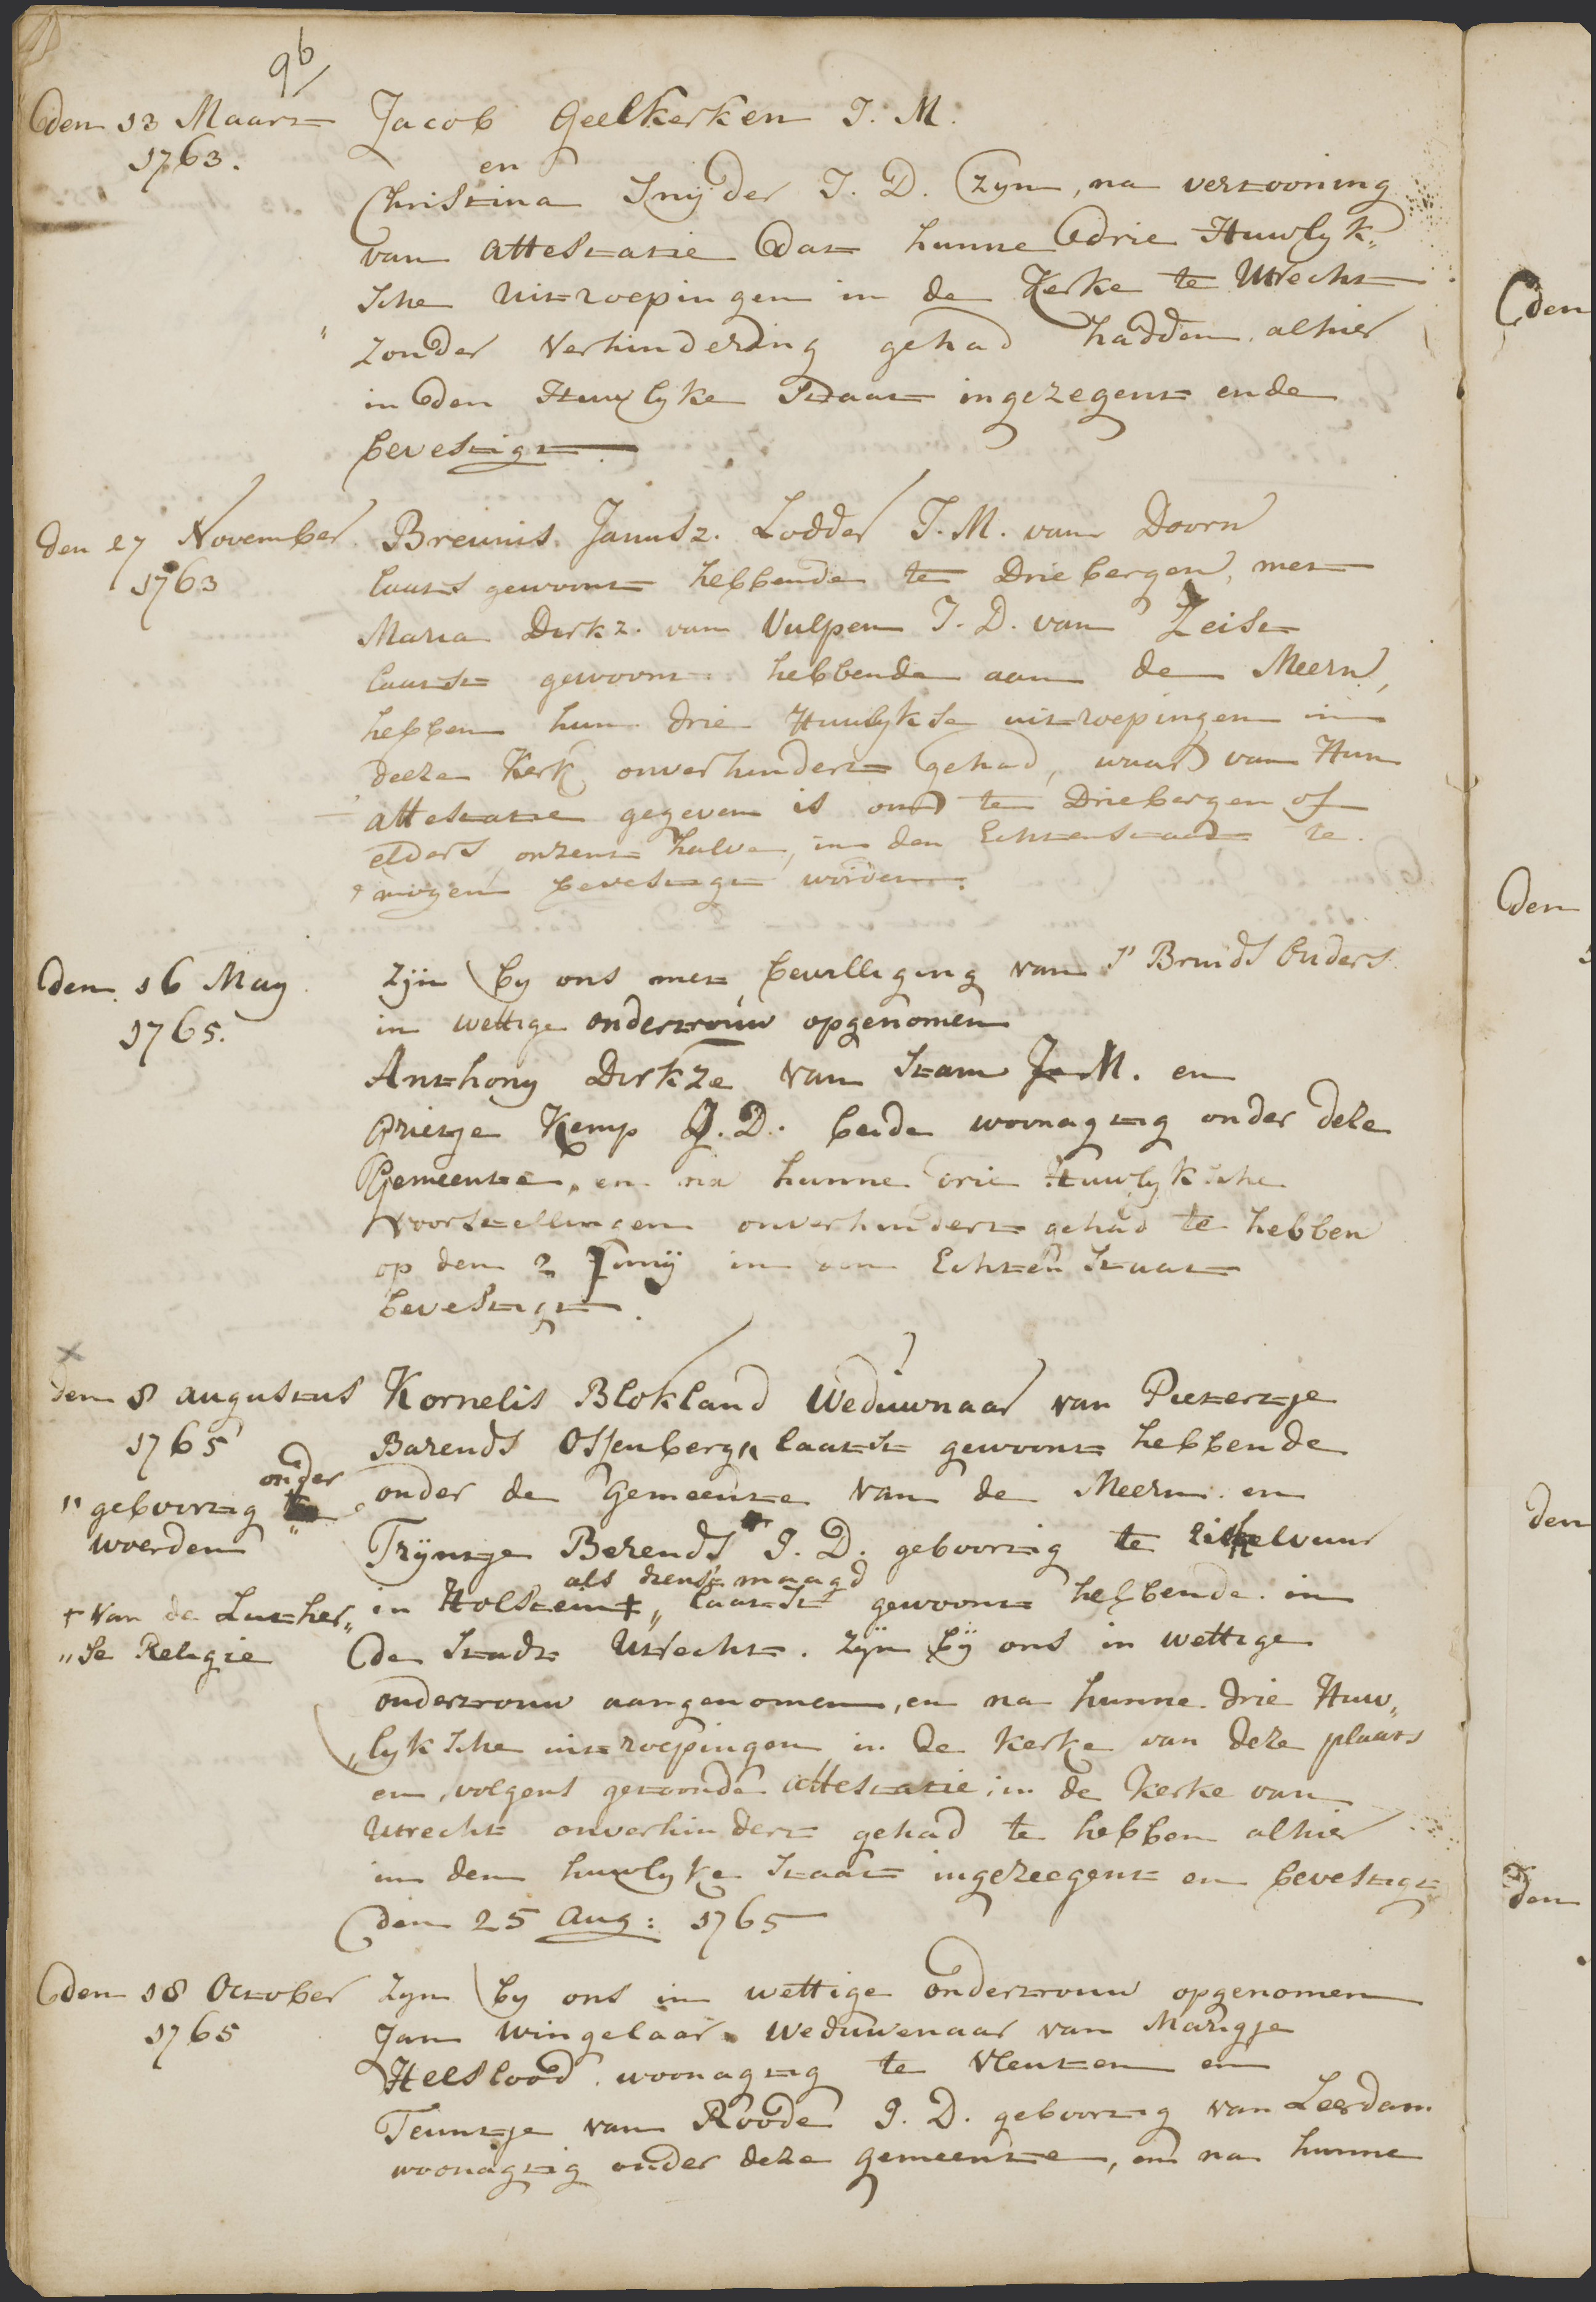 96
den 13 Maart
1763.
Jacob Geelkerken J. M.
en
Christina Snyder J. D. zyn, na vertooning
van attestatie dat hunne drie Huwlyk„
sche Uitroepingen in de Kerke te Utrecht
zonder verhindering gehad hadden, alhier
in den Huwlyke Staat ingezegent ende
bevestigt.
den 27 November
1763
Breunis Jansz. Lodder J. M. van Doorn
laatst gewoont hebbende te Driebergen, met
Maria Dirkz. van Vulpen J. D. van Zeist
laatst gewoont hebbende aan de Meern,
hebben hun drie Huwlykse uitroepingen in
deeze Kerk onverhindert gehad, waar van Hun
attestatie gegeven is om te Driebergen of
elders onzent halve, in den Echtenstaat te
mogen bevestigt worden.
den 16 May
1765.
zijn by ons met bewilliging van 's Bruids Ouders
in wettige ondertrouw opgenomen
Anthony Dirkze van Stam J. M. en
Grietje Kemp J. D. beide woonagtig onder deze
Gemeente, en na hunne drie Huwlyksche
Voorstellingen onverhindert gehad te hebben
op den 2 Junij in den Echten Staat
bevestigt.
den 8 augustus
1765
Kornelis Blokland Weduwnaar van Pietertje
Barends Ossenberg„ laatst gewoont hebbende
„ geboortig onder
woerden
onder de Gemeente van de Meern en
Tryntje Berends J. D. geboortig te
als dienstmaagd
in Holstein† „ laatst gewoont hebbende in
† van de Luther„
„se Religie
de Stadt Utrecht. zijn bÿ ons in wettige
ondertrouw aangenomen, en na hunne drie Huw„
„lyksche uitroepingen in de kerke van deze plaats
en, volgens getoonde attestatie, in de Kerke van
Utrecht onverhindert gehad te hebben alhier
in den huwlyke Staat ingezeegent en bevestigt
den 25 Aug: 1765
den 18 October
1765
Zyn by ons in wettige ondertrouw opgenomen
Jan Wingelaar Weduwenaar van Marigje
Heeslood woonagtig te Vleuten en
Teuntje van Roode J. D. geboortig van Leerdam
woonagtig onder deze gemeente, en na hunne
den
den
den
den